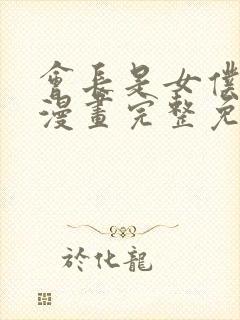 會長是女僕
漫畫完整免
於化龍